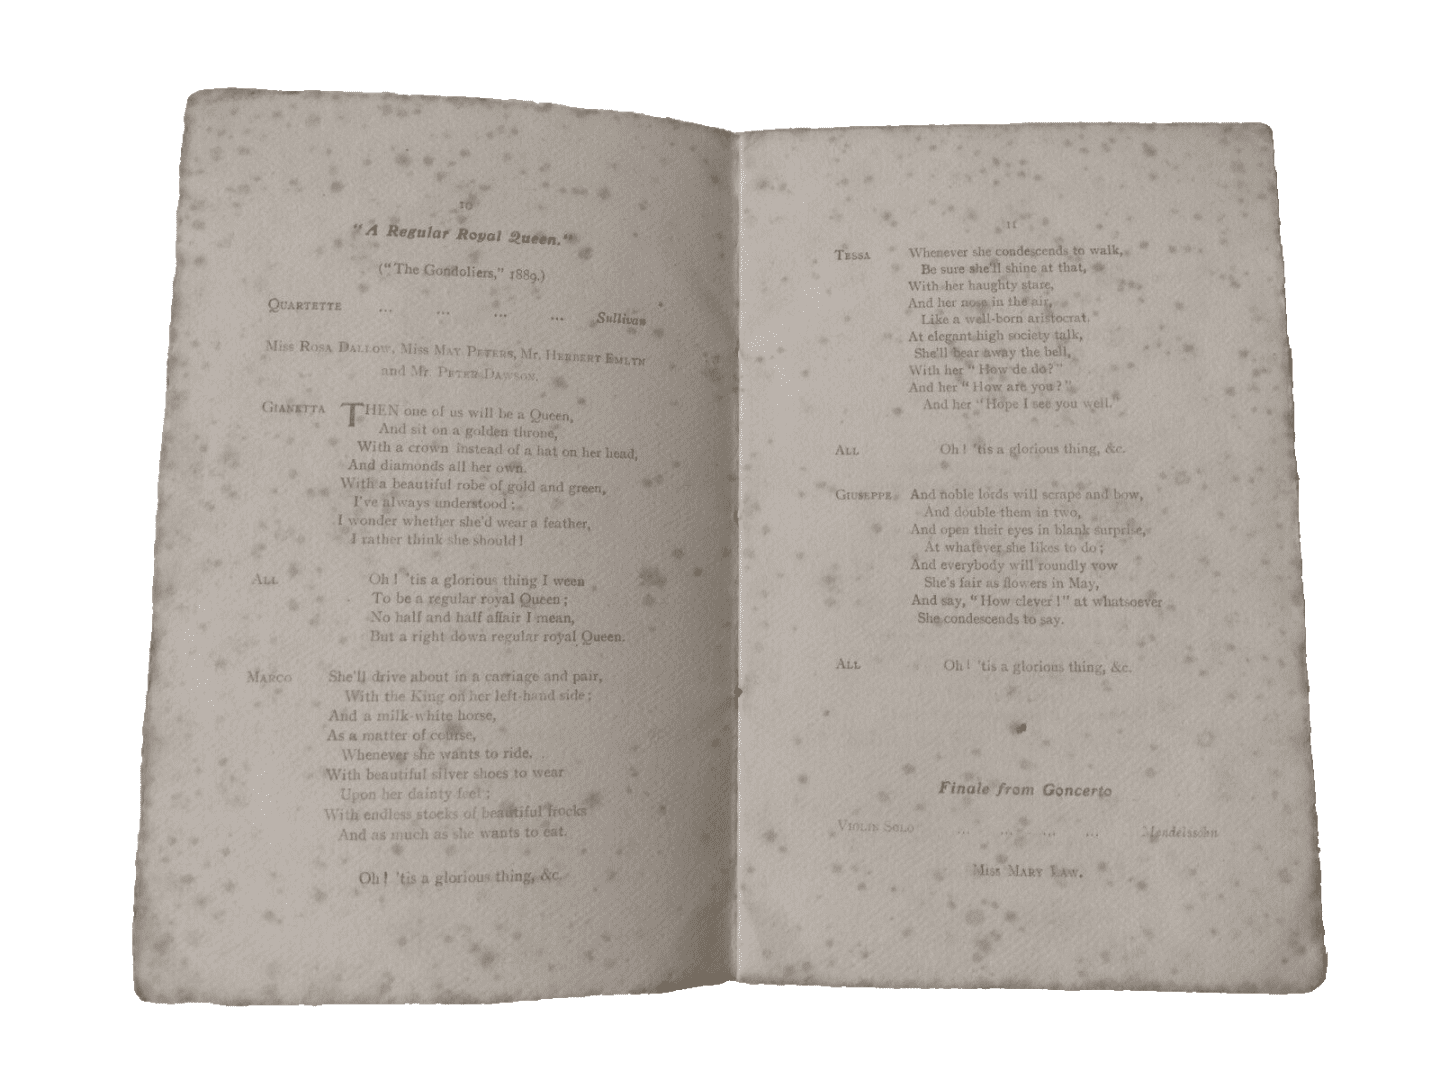 10
"A Regular Royal Queen."
("The Gondoliers," 1889.)
QUARTETTE ... ... ... ... Sullivan
MISS ROSA DALLOW, MISS MAY PETERS, MR. HERBERT EMLYN
and MR. PETER DAWSON.
GIANETTA THEN one of us will be a Queen,
And sit on a golden throne,
With a crown instead of a hat on her head,
And diamonds all her own.
With a beautiful robe of gold and green,
I've always understood;
I wonder whether she'd wear a feather,
I rather think she should!
ALL Oh! 'tis a glorious thing I ween
To be a regular royal Queen;
No half and half affair I mean,
But a right down regular royal Queen.
MARCO She'll drive about in a carriage and pair,
With the King on her left-hand side;
And a milk-white horse,
As a matter of course,
Whenever she wants to ride.
With beautiful silver shoes to wear
Upon her dainty feet;
With endless stocks of beautiful frocks
And as much as she wants to eat.
Oh! 'tis a glorious thing, &c.
11
TESSA Whenever she condescends to walk,
Be sure she'll shine at that,
With her haughty stare,
And her nose in the air,
Like a well-born aristocrat.
At elegant high society talk,
She'll bear away the bell,
With her "How de do?"
And her "How are you?"
And her "Hope I see you well."
ALL Oh! 'tis a glorious thing, &c.
GIUSEPPE And noble lords will scrape and bow,
And double them in two,
And open their eyes in blank surprise,
At whatever she likes to do;
And everybody will roundly vow
She's fair as flowers in May,
And say, "How clever!" at whatsoever
She condescends to say.
ALL Oh! 'tis a glorious thing, &c.
Finale from Concerto
VIOLIN SOLO ... ... ... ... Mendelssohn
MISS MARY LAW.